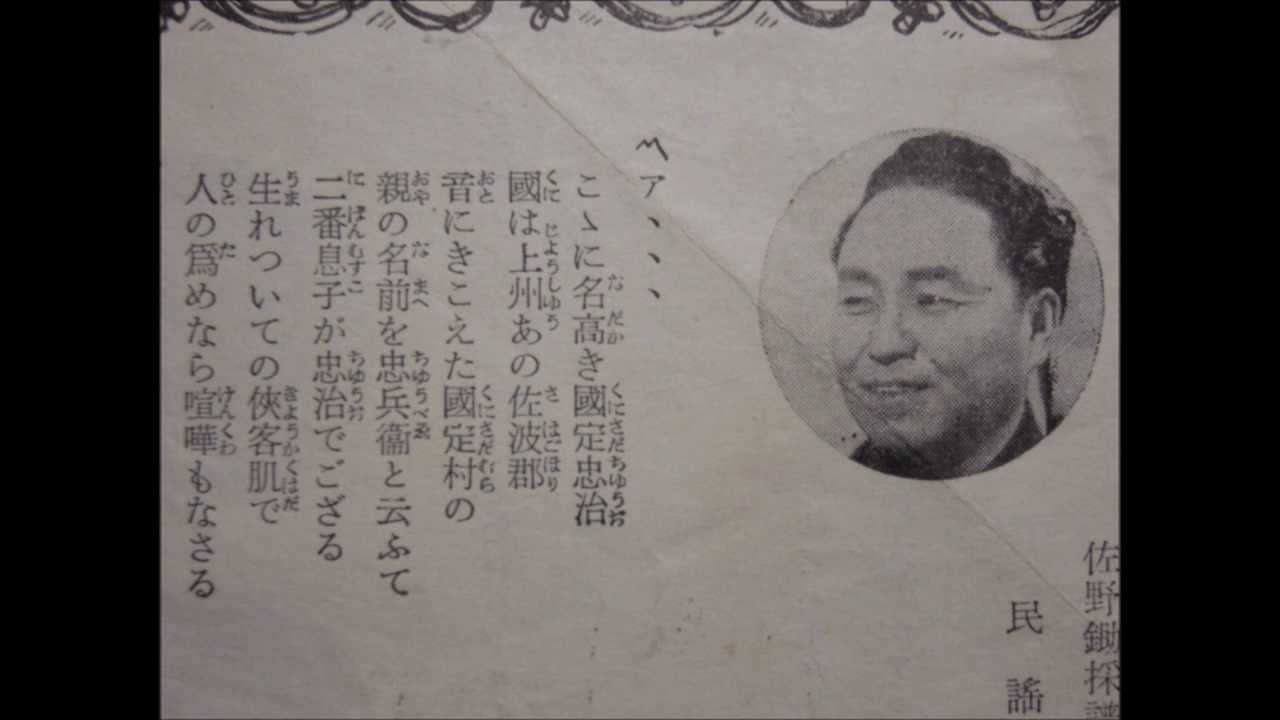 佐野鋤採譜
民謡
〽ア、、、
こゝに名高き國定忠治
國は上州あの佐波郡
音にきこえた國定村の
親の名前を忠兵衞と云ふて
二番息子が忠治でござる
生れついての俠客肌で
人の爲めなら喧嘩もなさる